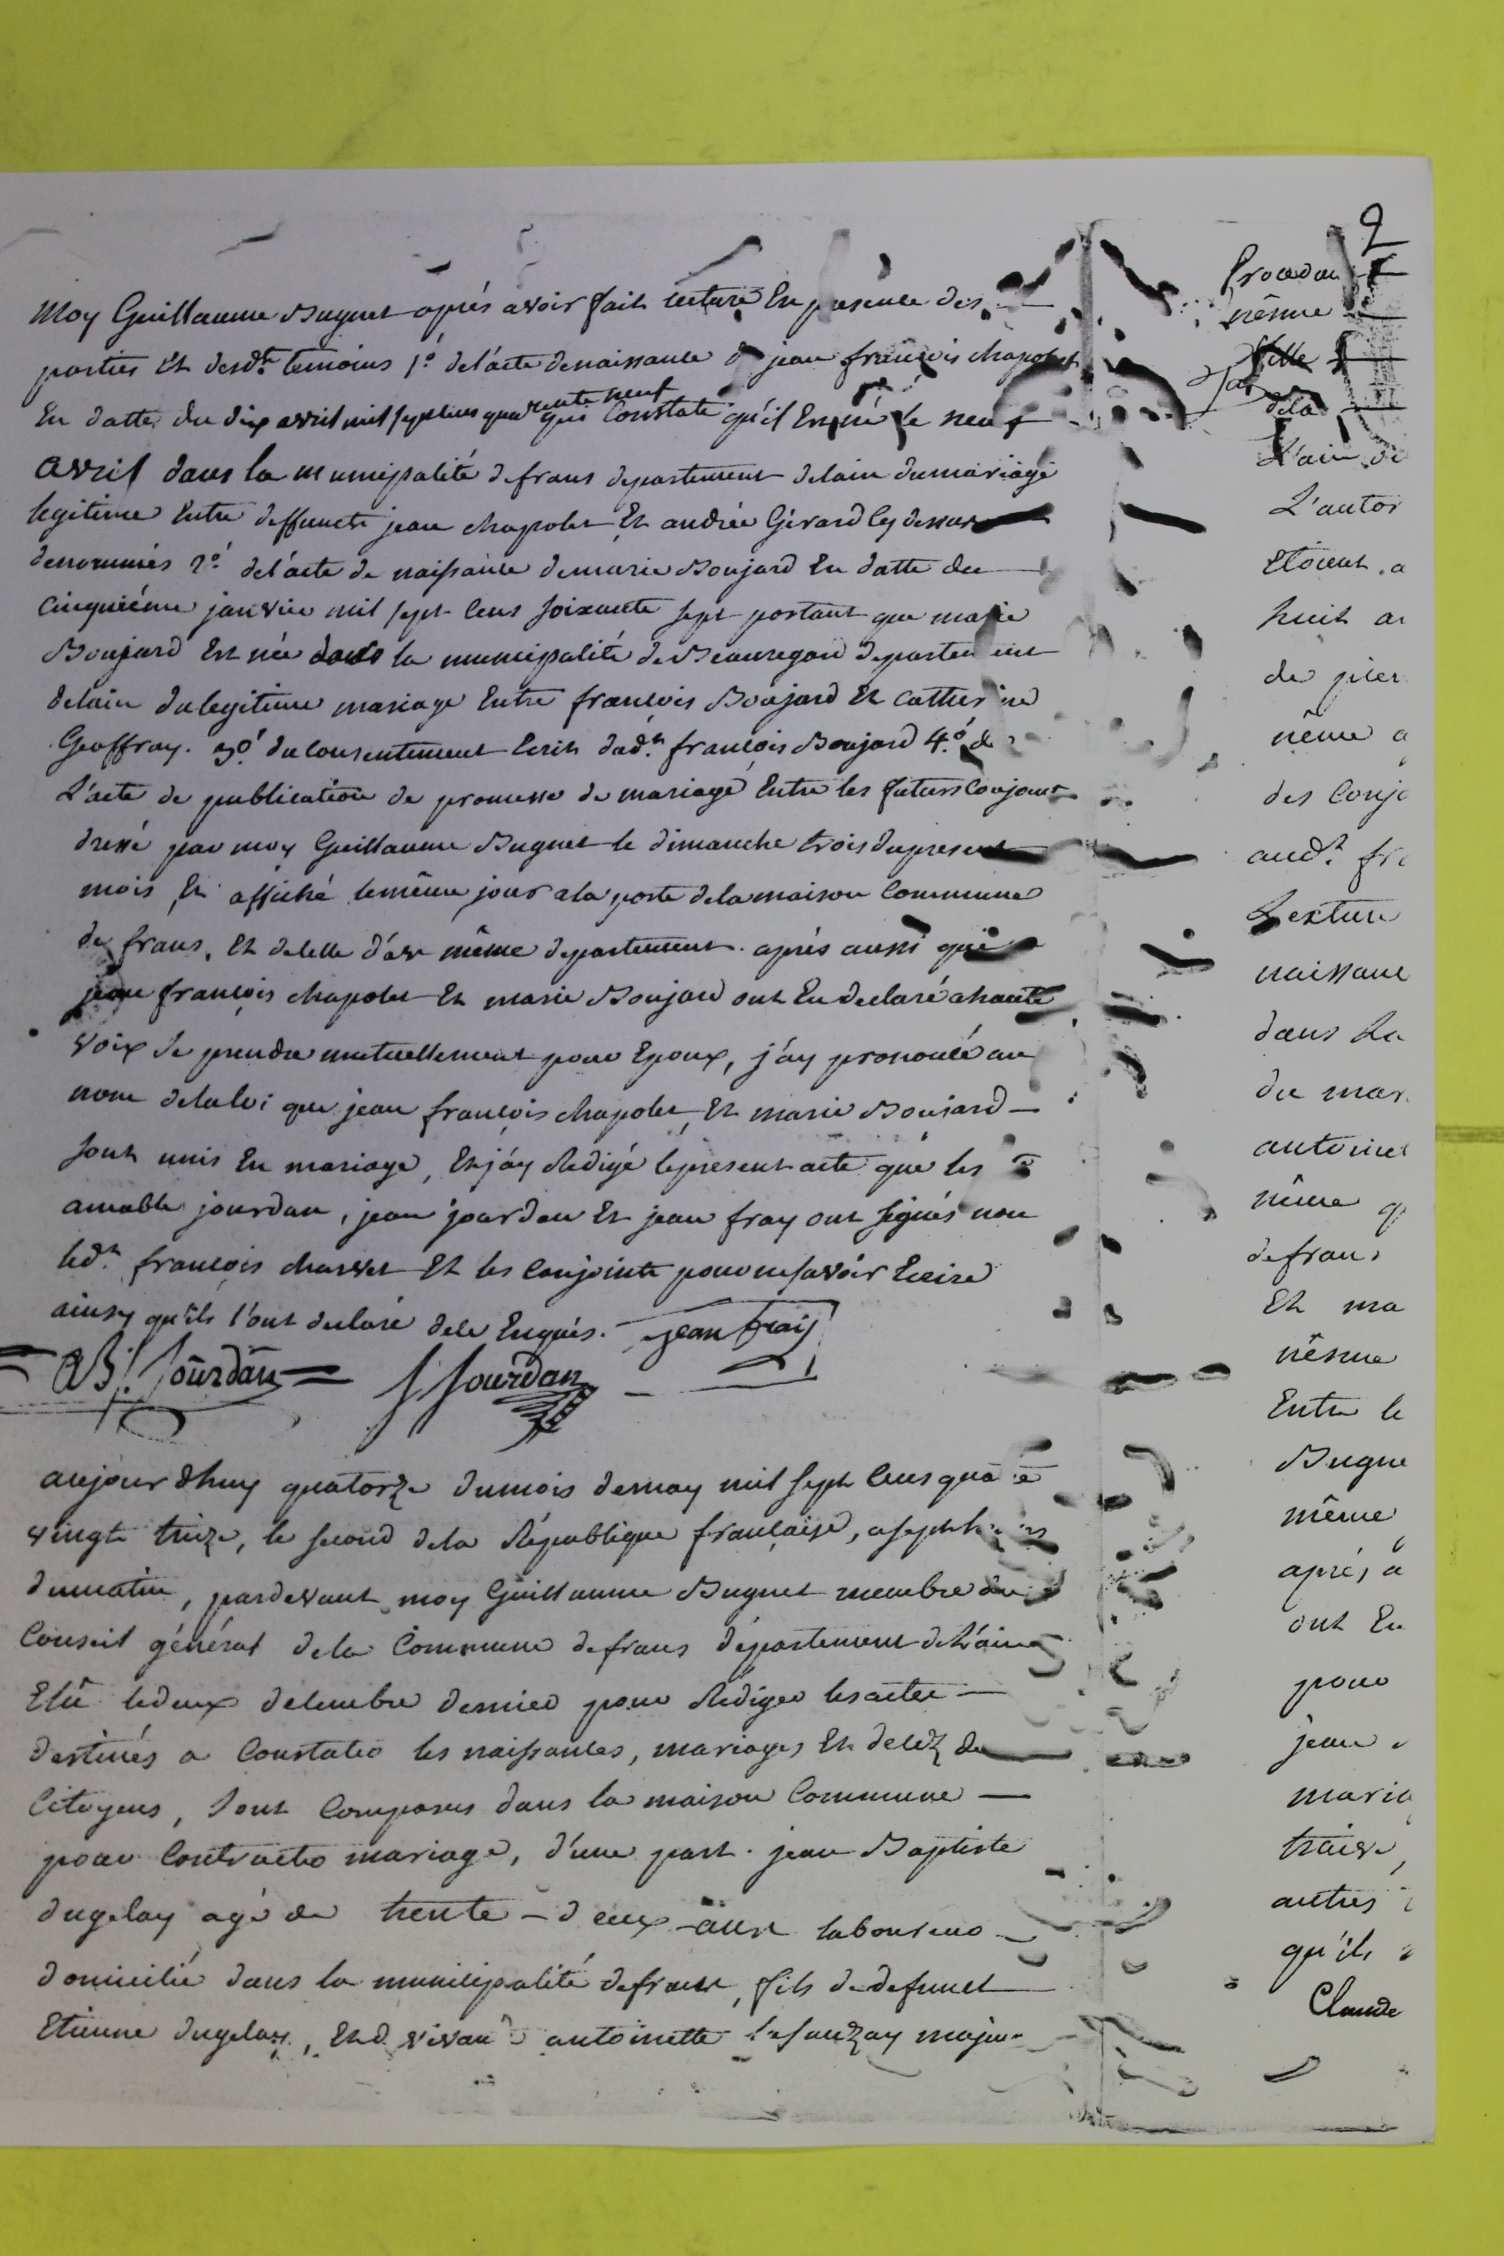 Moy Guillaume Buguet aprés avoir fait lecture En presence des
parties Et desdts temoins 1º. del'acte denaissance d jean françois chapolet
En datte du dix avril mil sept cens quarente neuf qui Constate qu'il Est né le neuf
avril dans la municipalité defrans departement delain dumariage
legitime Entre deffuncts jean chapolet Et andrée Gérard cy dessus
denommés 2º. del'acte de naissance demarie Boujard En datte du
cinquiéme janvier mil sept cens soixante sept portant que marie
Boujard Est née dans la municipalité de Beauregard departement
delain dulegitime mariage Entre françois Boujard Et catherine
Geoffray. 3º. du consentement Ecrit dudt. françois Boujard 4º. de
L'acte de publication de promesse de mariage Entre les futurs Conjoints
dressé par moy Guillaume Buguet le dimanche trois dupresent
mois Et affiché lemême jour ala porte delamaison Commune
de frans, Et delelle d'ars même departement. aprés aussi que
jean françois chapolet Et marie Boujard ont Eu declaré ahaute
voix se prendre mutuellement pour Epoux, j'ay prononcé au
nom delaloi que jean françois chapolet Et marie Boujard
sont unis En mariage, Et j'ay Redigé lepresent acte que les
amable jourdan, jean jourdan Et jean fray ont signés non
ledt. françois charvet Et les Conjoints pour nesavoir Ecrire
ainsy qu'ils l'ont declaré dele Enquis. jean fraij
Jourdan J Jourdan
aujourdhuy quatorze dumois demay mil sept cens quatre
vingts treize, le second dela République française, asept heures
dumatin, pardevant moy Guillaume Buguet membre du
Conseil général dela Commune defrans département de L'ain
Elû ledeux décembre dernier pour Rédiger lesactes
destinés a Constater les naissances, mariages Et décéz des
Citoyens, sont Comparus dans la maison Commune
pour Contracter mariage, d'une part. jean Baptiste
dugelay agé de trente-deux ans laboureur
domicilié dans la municipalité defrans, fils de defunct
Etienne dugelay, Et d vivante antoinette majeur
2
Procedan
même
Ville
dela
L'ain de
L'autor
Etoient a
huit an
de pier
même a
des Conjo
audt. fra
Lecture
naissance
dans La
du mar
antoinet
même q
defrans
Et ma
même
Entre le
Bugue
même
aprés a
ont Eu
pour
jean
maria
traisv
autres
qu'ils
Claude